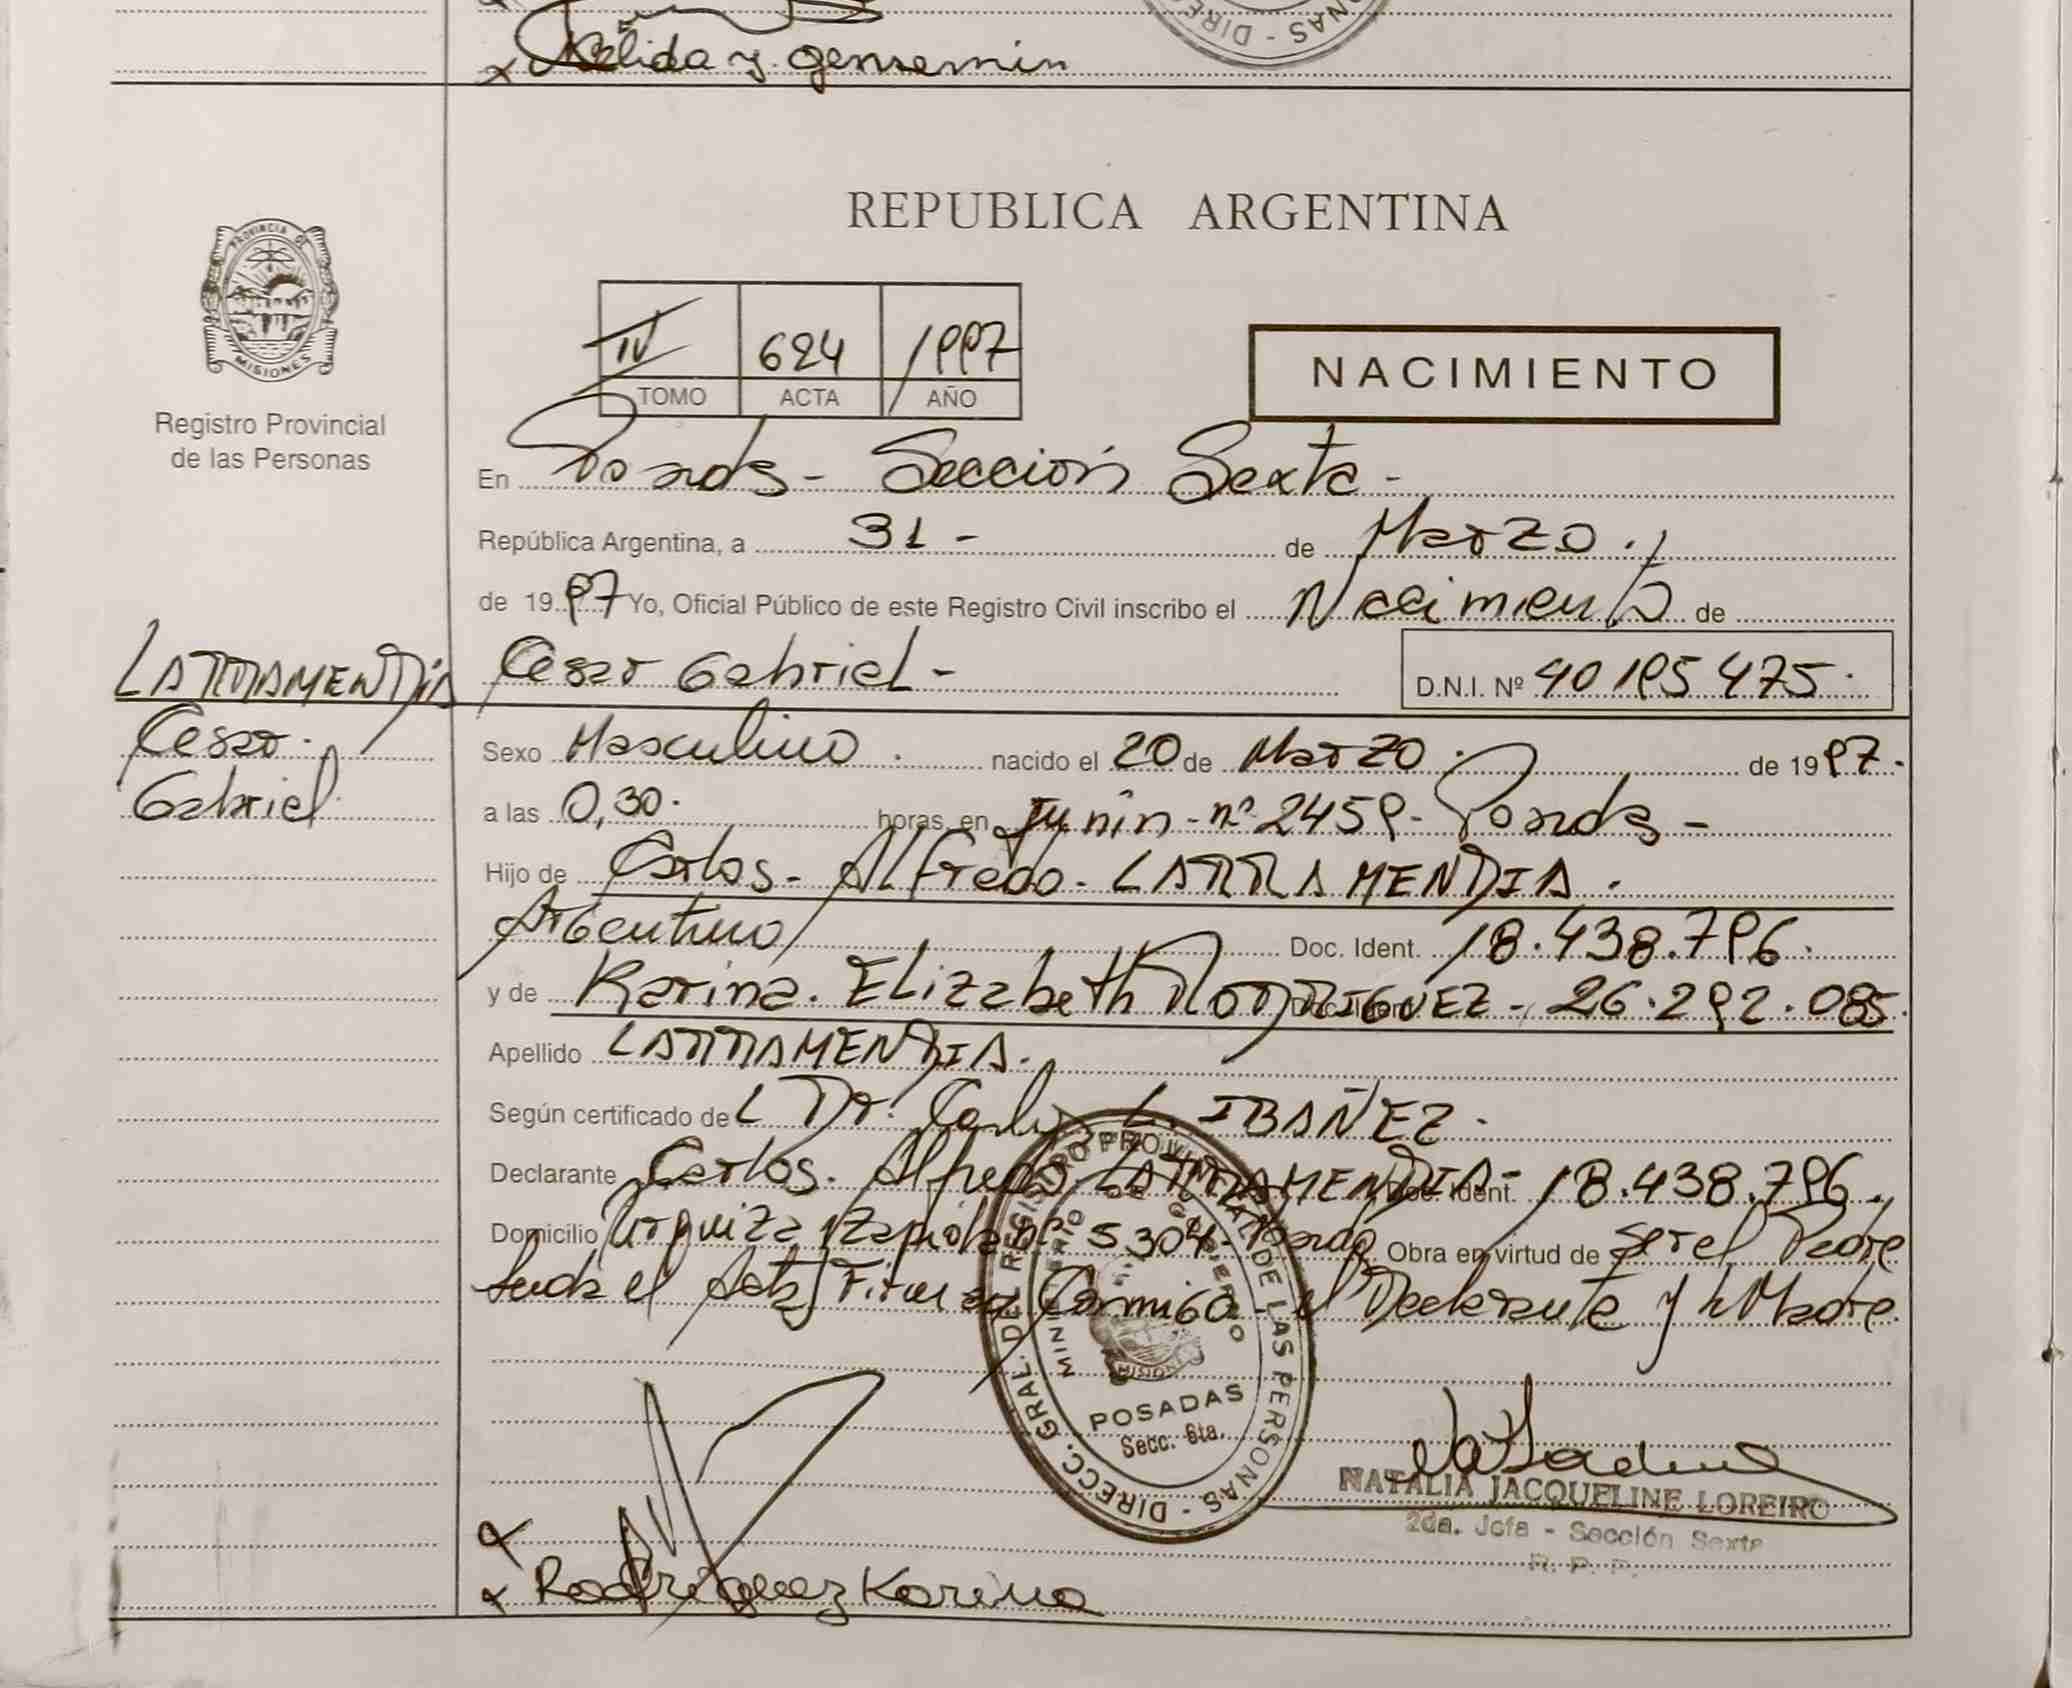 Nelida y. gensemin
DIREC
ONAS
REPUBLICA ARGENTINA
PROVINCIA DE
MISIONES
Registro Provincial
de las Personas
IV 624 1997
TOMO ACTA AÑO
NACIMIENTO
En Posadas - Sección Sexta -
República Argentina, a 31 - de Marzo.
de 1997 Yo, Oficial Público de este Registro Civil inscribo el Nacimiento de
Cesar Gabriel - D.N.I. Nº 40195475.
LARRAMENDIA
Cesar.
Gabriel.
Sexo Masculino. nacido el 20 de Marzo. de 1997.
a las 0,30. horas, en Junin - nº 2459 - Posadas -
Hijo de Carlos - Alfredo - LARRAMENDIA.
Argentino Doc. Ident. 18.438.796.
y de Karina. Elizabeth RODRIGUEZ - 26.292.085.
Apellido LARRAMENDIA.
Según certificado del Dr. Carlos L. IBAÑEZ.
Declarante Carlos. Alfredo LARRAMENDIA - Doc. Ident. 18.438.796.
Domicilio Urquiza y Zapiola nº 5304 - Posadas Obra en virtud de ser el Padre
Leida el Acta, Firman Conmigo - el Declarante y la Madre.
DIRECC. GRAL. DEL REGISTRO PROVINCIAL DE LAS PERSONAS
MINISTERIO DE GOBIERNO
MISIONES
POSADAS
Secc. 6ta.
NATALIA JACQUELINE LOREIRO
2da. Jefa - Sección Sexta
R. P. P.
Rodriguez Karina